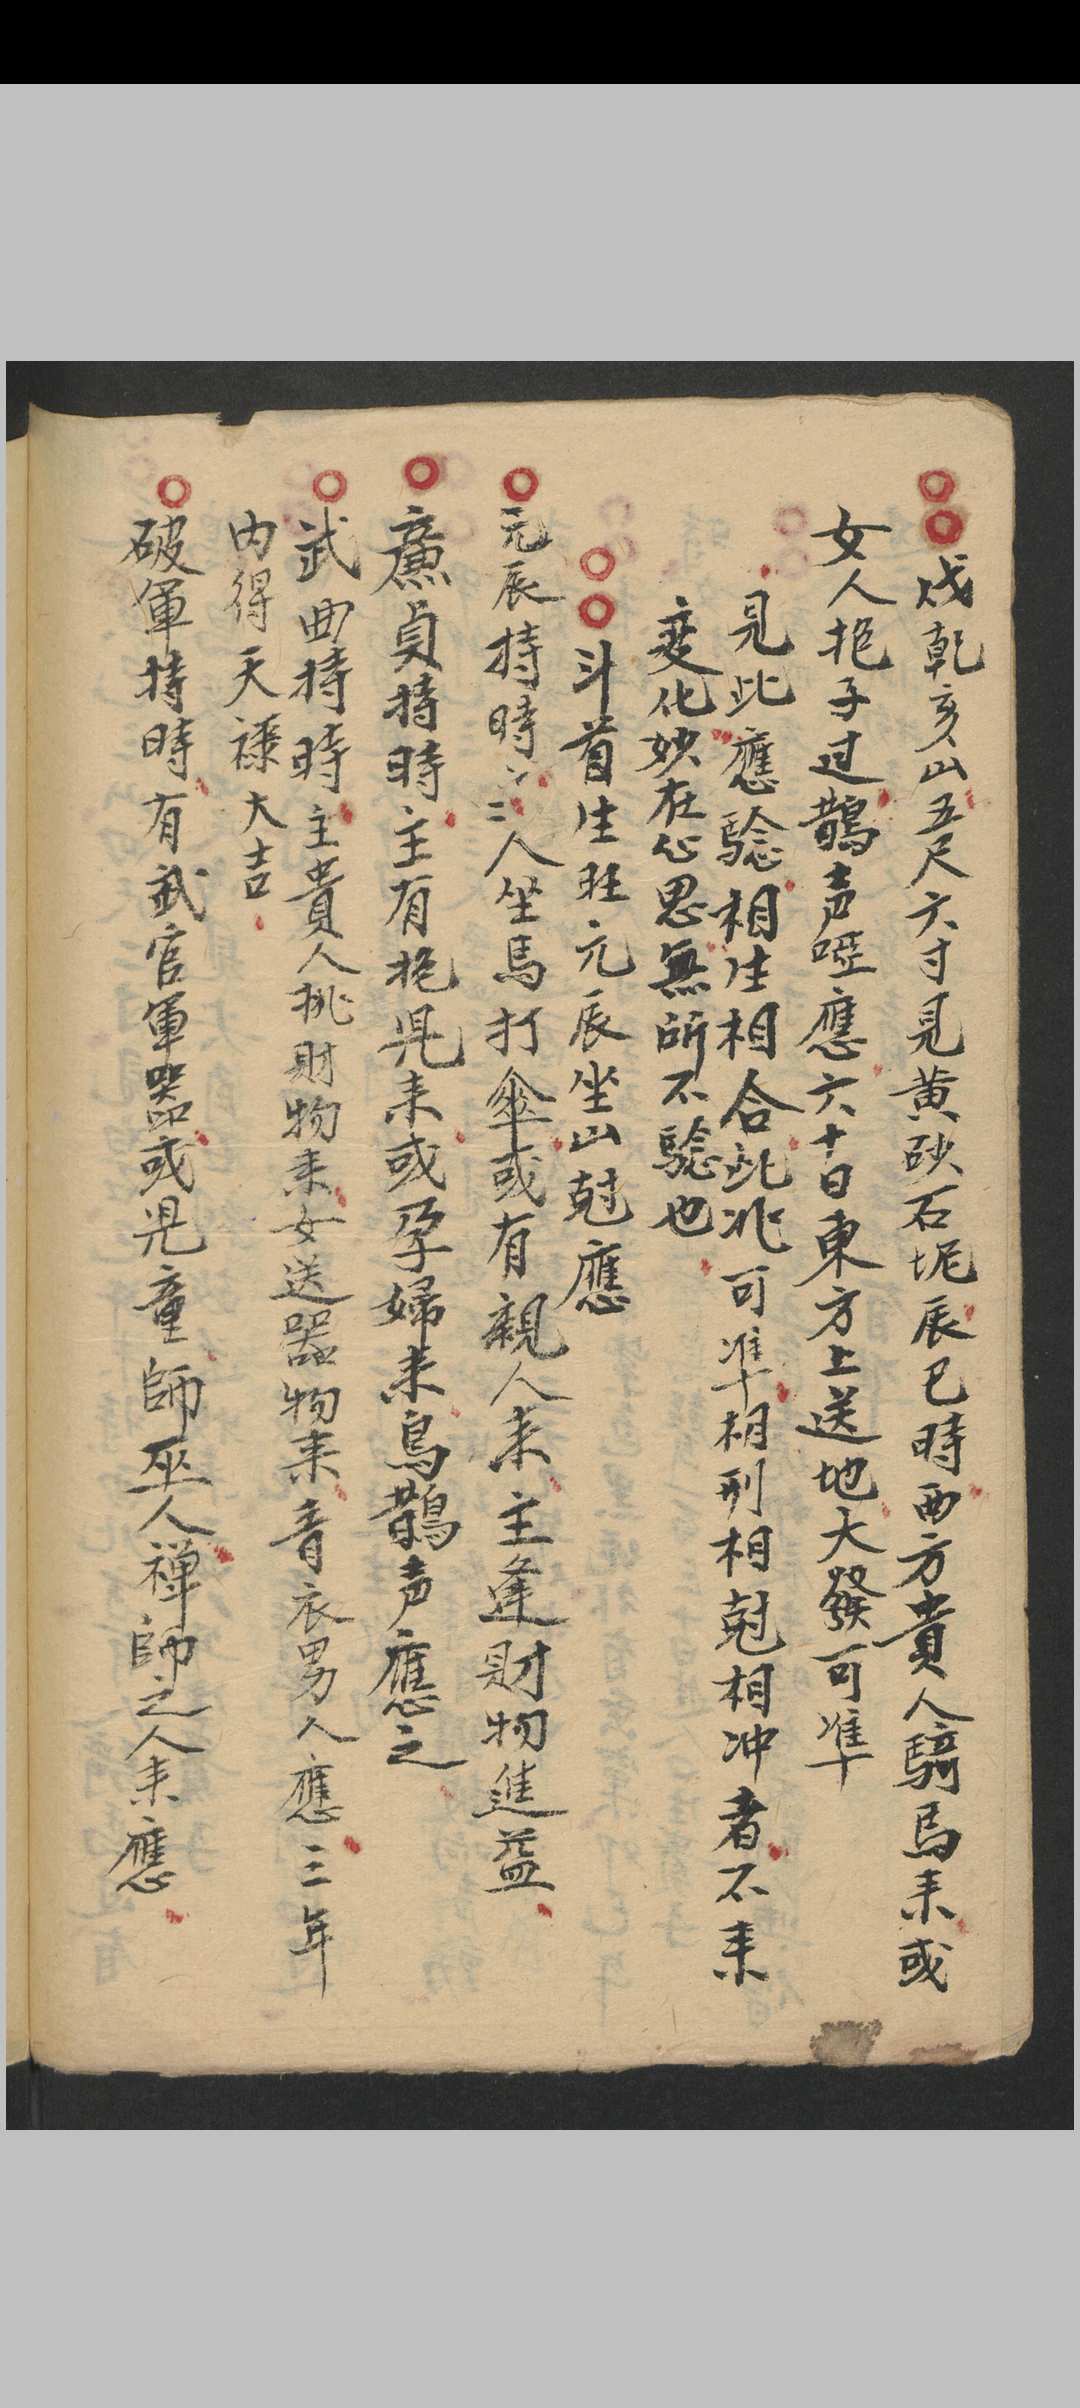 戌乾亥山五尺六寸見黄砂石坭辰巳時西方貴人騎馬来或
女人抱子过鵲声啞應六十日東方上送地大發可準
見此應驗相生相合此兆可準相刑相尅相冲者不来
変化妙在心思無所不驗也
斗首生旺元辰坐山尅應
元辰持時主三人坐馬打傘或有親人来主逢財物進益
廉貞持時主有抱児来或孕婦来鳥鵲声應之
武曲持時主貴人挑財物来女送器物来音衣男人應三年
内得天祿大吉
破軍持時有武官軍器或児童師巫人禅師之人来應